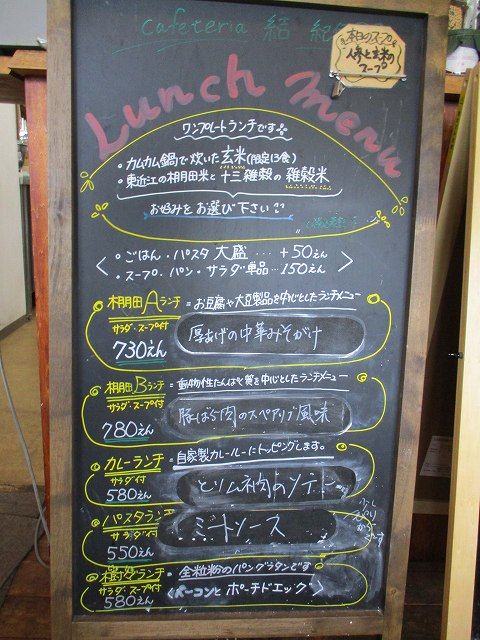 cafeteria 結
本日のスープ
人参と玄米の
スープ
Lunch menu
ワンプレートランチです
・カムカム鍋で炊いた玄米(限定13食)
・東近江の棚田米と十三雑穀の雑穀米
お好みをお選び下さい
・ごはん・パスタ 大盛 ‥‥ +50えん
・スープ・パン・サラダ 単品 … 150えん
棚田Aランチ = お豆腐や大豆製品を中心としたランチメニュー
サラダ・スープ付
730えん
厚あげの中華みそがけ
棚田Bランチ = 動物性たんぱく質を中心としたランチメニュー
サラダ・スープ付
780えん
豚ばら肉のスペアリブ風味
カレーランチ = 自家製カレールーにトッピングします。
サラダ付
580えん
とりムネ肉のソテー
パスタランチ
サラダ付
550えん
ミートソース
少し
ピリ
から
です
樹冬ランチ = 全粒粉のパングラタンです
サラダ・スープ付
580えん
<ベーコンと ポーチドエッグ>